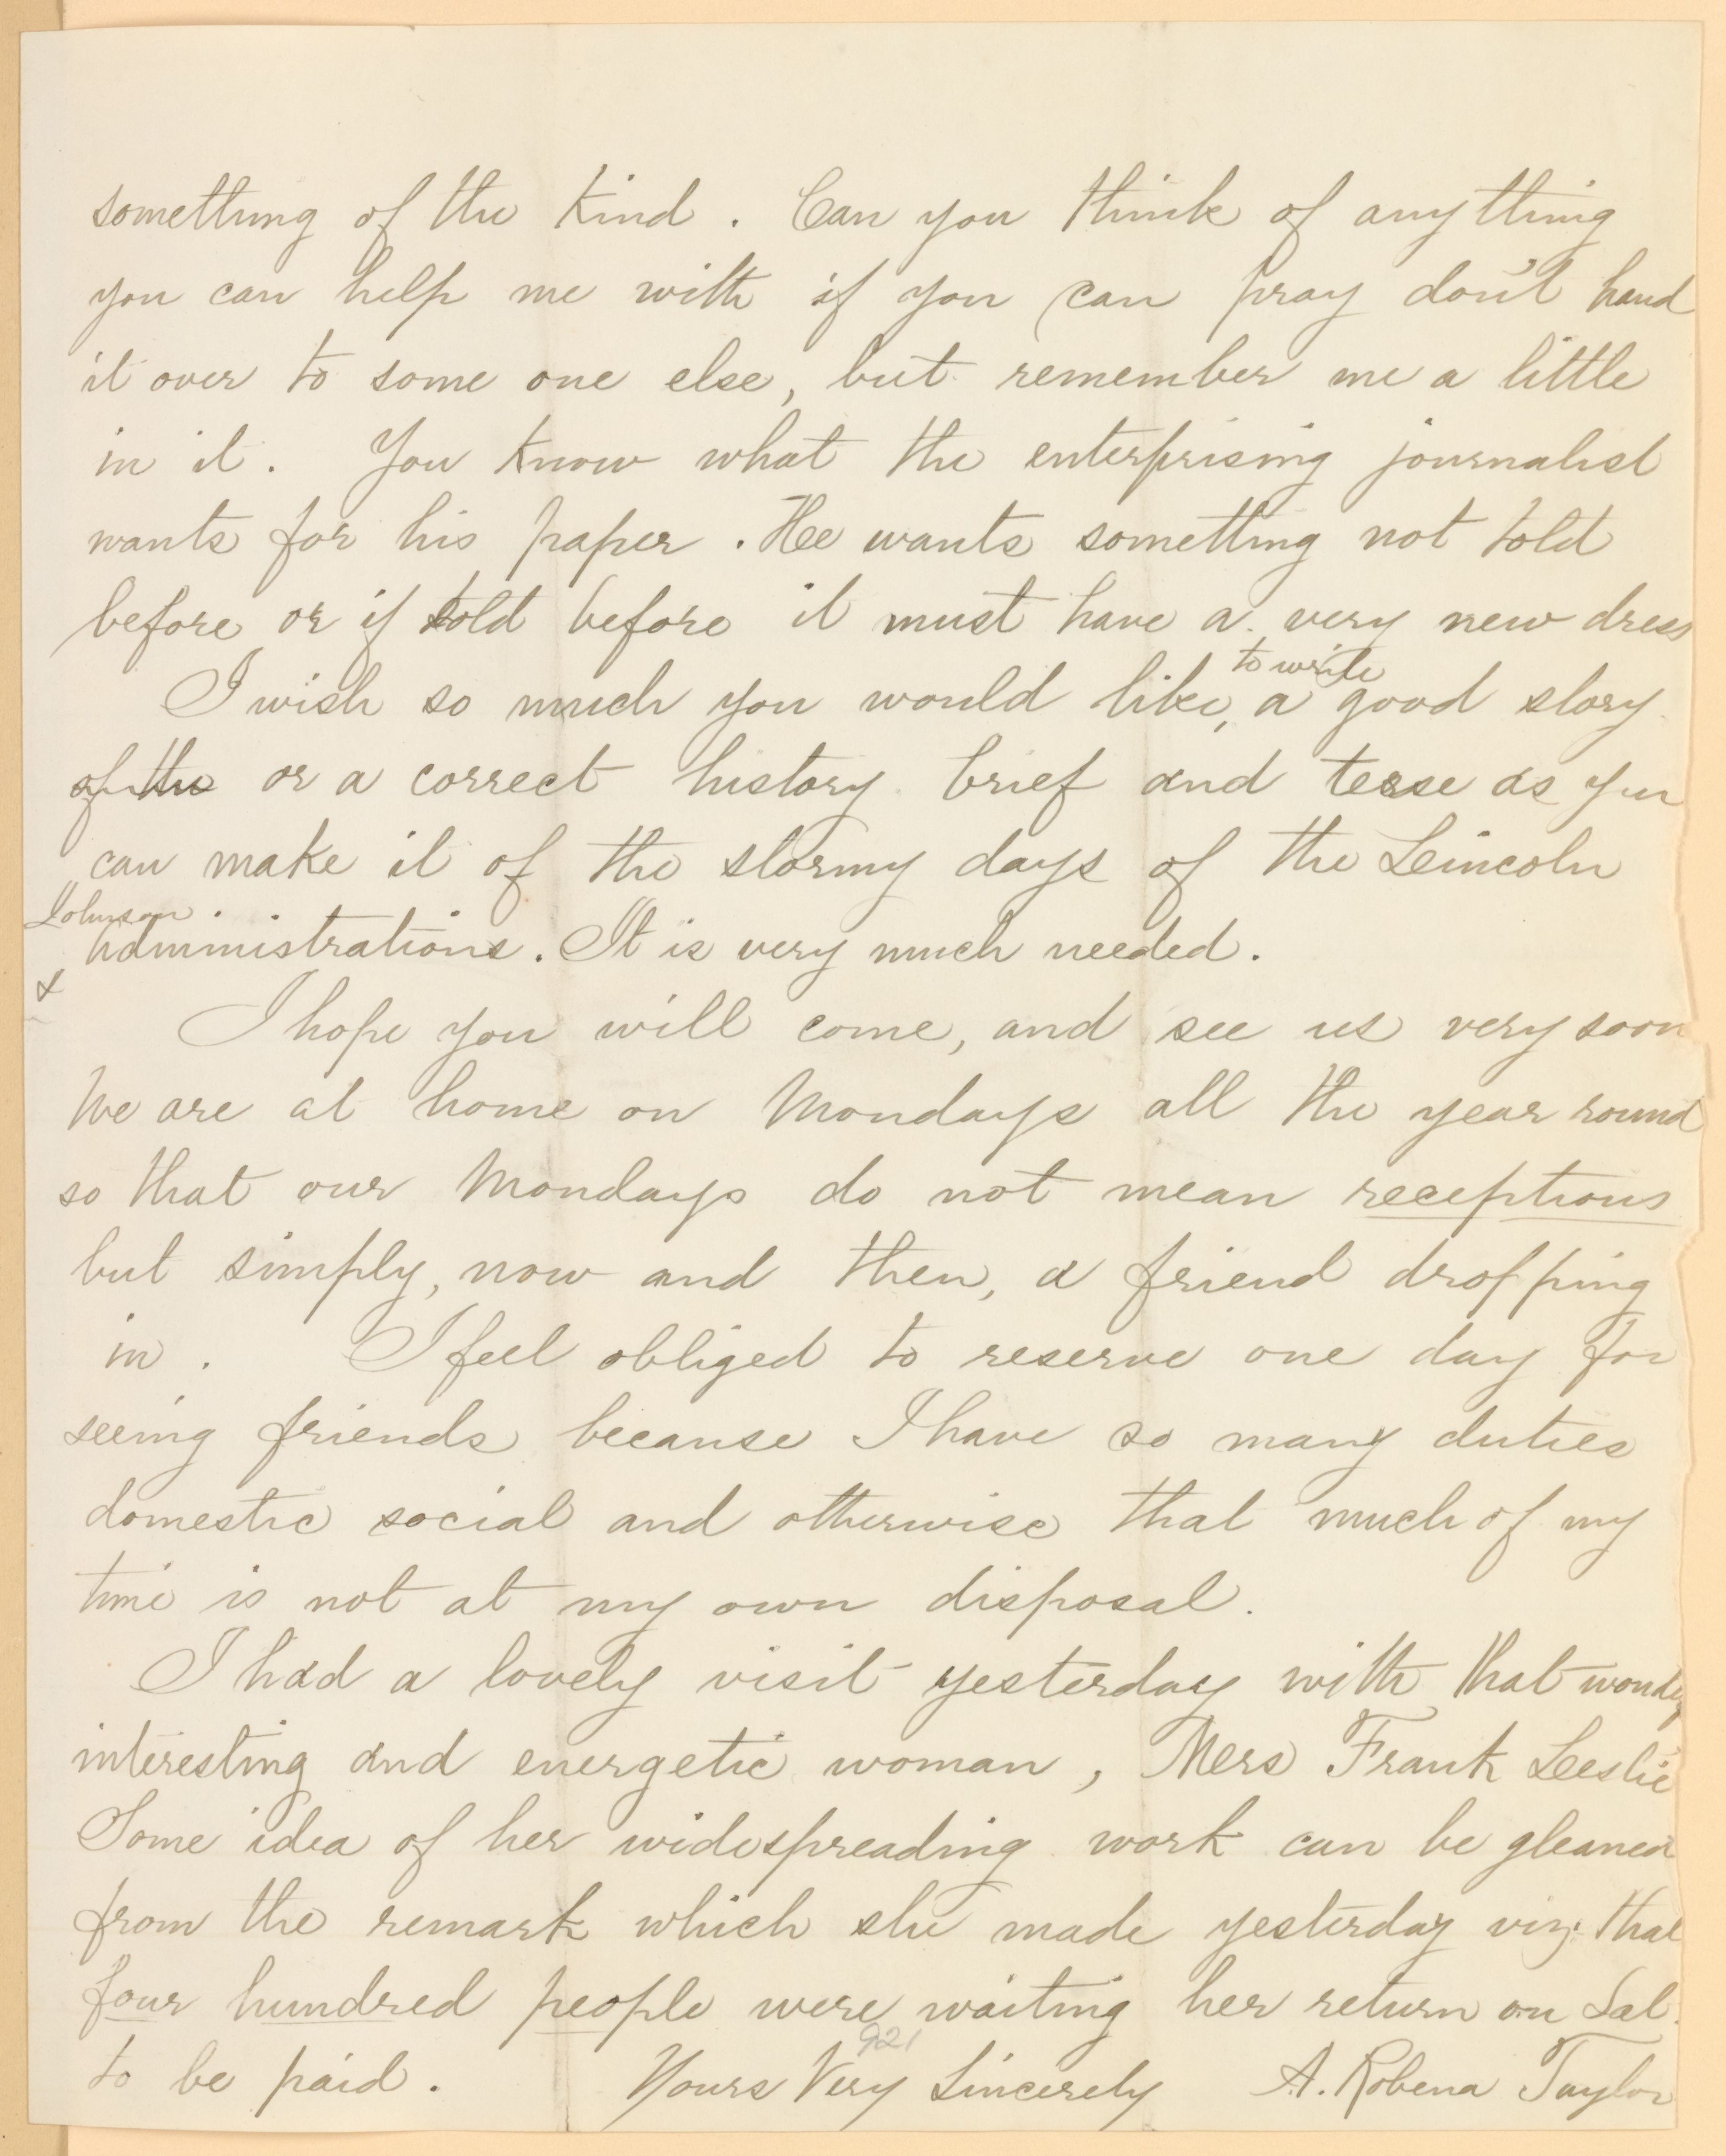 something of the kind. Can you think of anything
you can help me with if you can pray don't hand
it over to some one else, but remember me a little
in it. You know what the enterprising journalist
wants for his paper. He wants something not told
before or if told before it must have a very new dress
to write
I wish so much you would like, a good story
of the or a correct history brief and terse as you
can make it of the stormy days of the Lincoln
Johnson.
administrations. It is very much needed.
&
I hope you will come, and see us very soon
We are at home on Mondays all the year round
so that our Mondays do not mean receptions
but simply, now and then, a friend dropping
in. I feel obliged to reserve one day for
seeing friends because I have so many duties
domestic social and otherwise that much of my
time is not at my own disposal.
I had a lovely visit yesterday with that
interesting and energetic woman, Mrs Frank Leslie
Some idea of her widespreading work can be gleaned
from the remark which she made yesterday viz: that
four hundred people were waiting her return on Sat.
921
to be paid. Yours Very Sincerely A. Robena Taylor